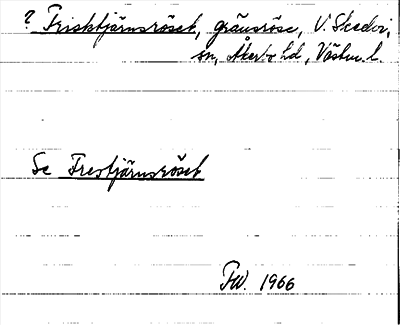 ? Frisktjärnsröset, gränsröse, V. Skedvi,
sn, Åkerbo hd, Västm. l.
Se Frestjärnsröset
FW. 1966